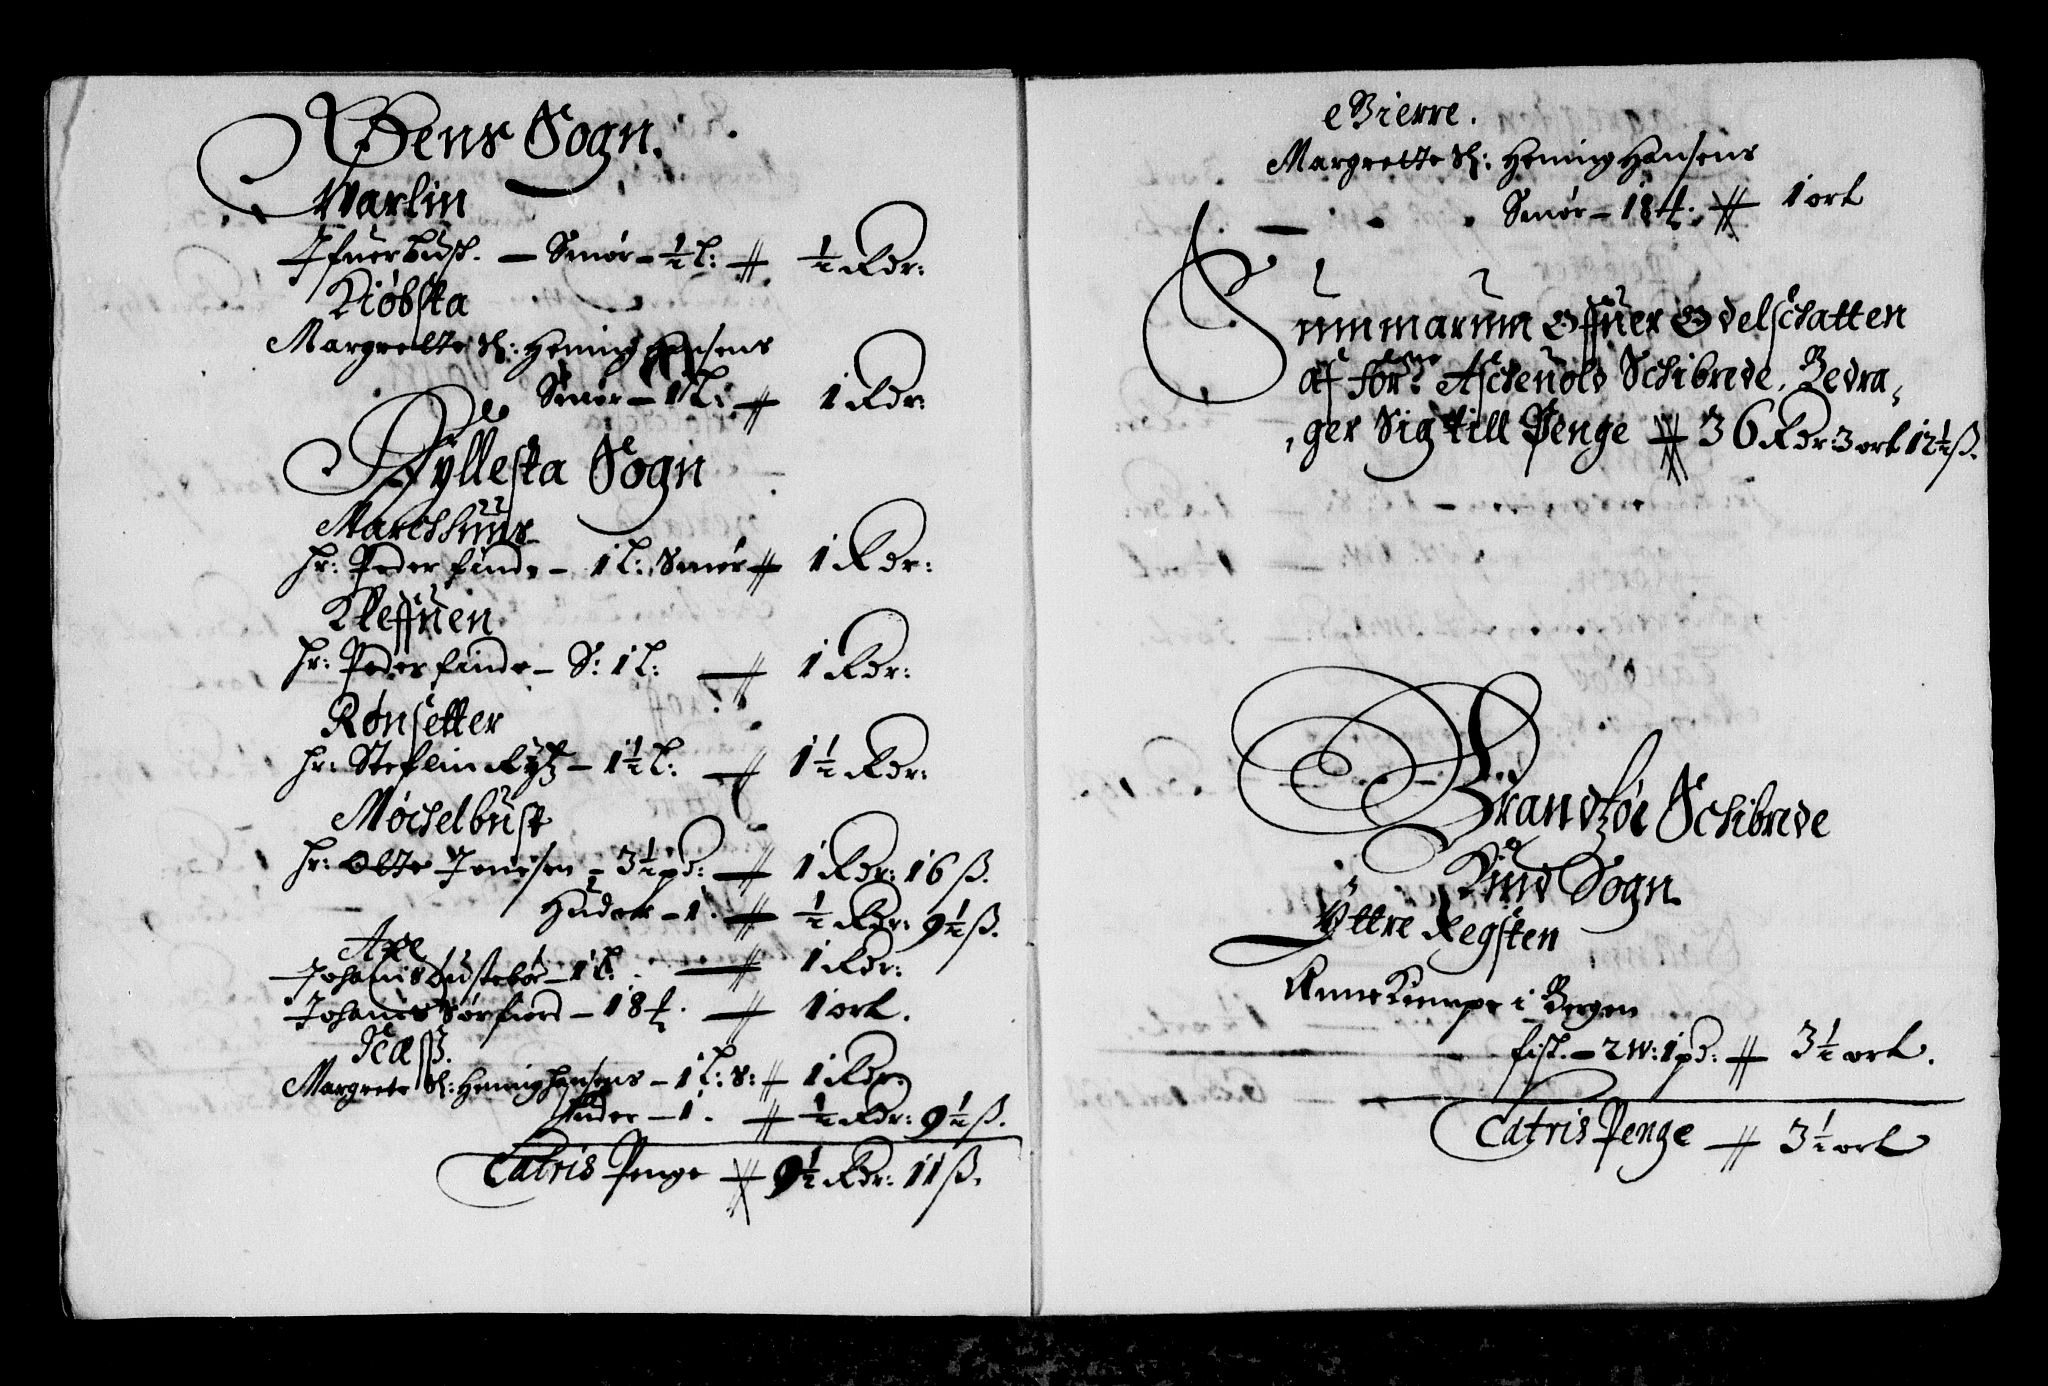 Wens Sogn.
Warlin
Ifuerbusch. — Smør – ½ l: # ½ Rdr:
Kiøbsta
Margrette Sl: Heming Hansens
Smør – 1 l: # 1 Rdr:
Fyllesta Sogn
Marchhuus
Hr: Peder finde – 1 l: Smør # 1 Rdr:
Kleffuen
Hr: Peder finde – S: 1 l: # 1 Rdr:
Rønsetter
Hr: Steflin – 1½ l: # 1½ Rdr:
Møchelbust
Hr: Otte Jonesen – 3½ pd: # 1 Rdr: 16 ß.
Huder – 1. # ½ Rdr: 9½ ß.
Axe
Johanis Bustebør – 1 l: — 1 Rdr:
Johanes Sørfiord – 18 # 1 ort.
Margrete Sl: Heming Hansens – 1 l: S: # 1 Rdr:
Huder – 1. # ½ Rdr: 9½ ß.
Catris Penge # 9½ Rdr: 11 ß.
eBierre.
Margrette Sl: Heming Hansens
Smør – 18 # 1 ort
Summarum Offuer Odelschatten
af forne Aschenold Schibrede, Bedra,
,ger Sig till Penge # 36 Rdr 3 ort 12½ ß.
Brandtzøe Schibrede
Kind Sogn.
Yttre Regsten
Anne Kempe i Bergen
fisk. – 2 W: 1 pd: # 3½ ort.
Catris Penge # 3½ ort